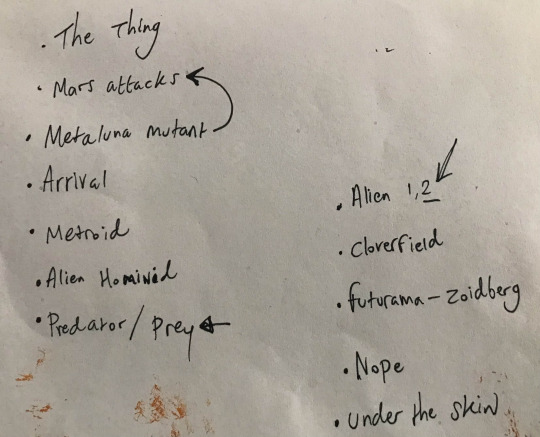 • The Thing
• Mars attacks
• Metaluna mutant
• Arrival
• Metroid
• Alien Hominid
• Predator / Prey
• Alien 1,2
• Cloverfield
• Futurama – Zoidberg
• Nope
• Under the skin